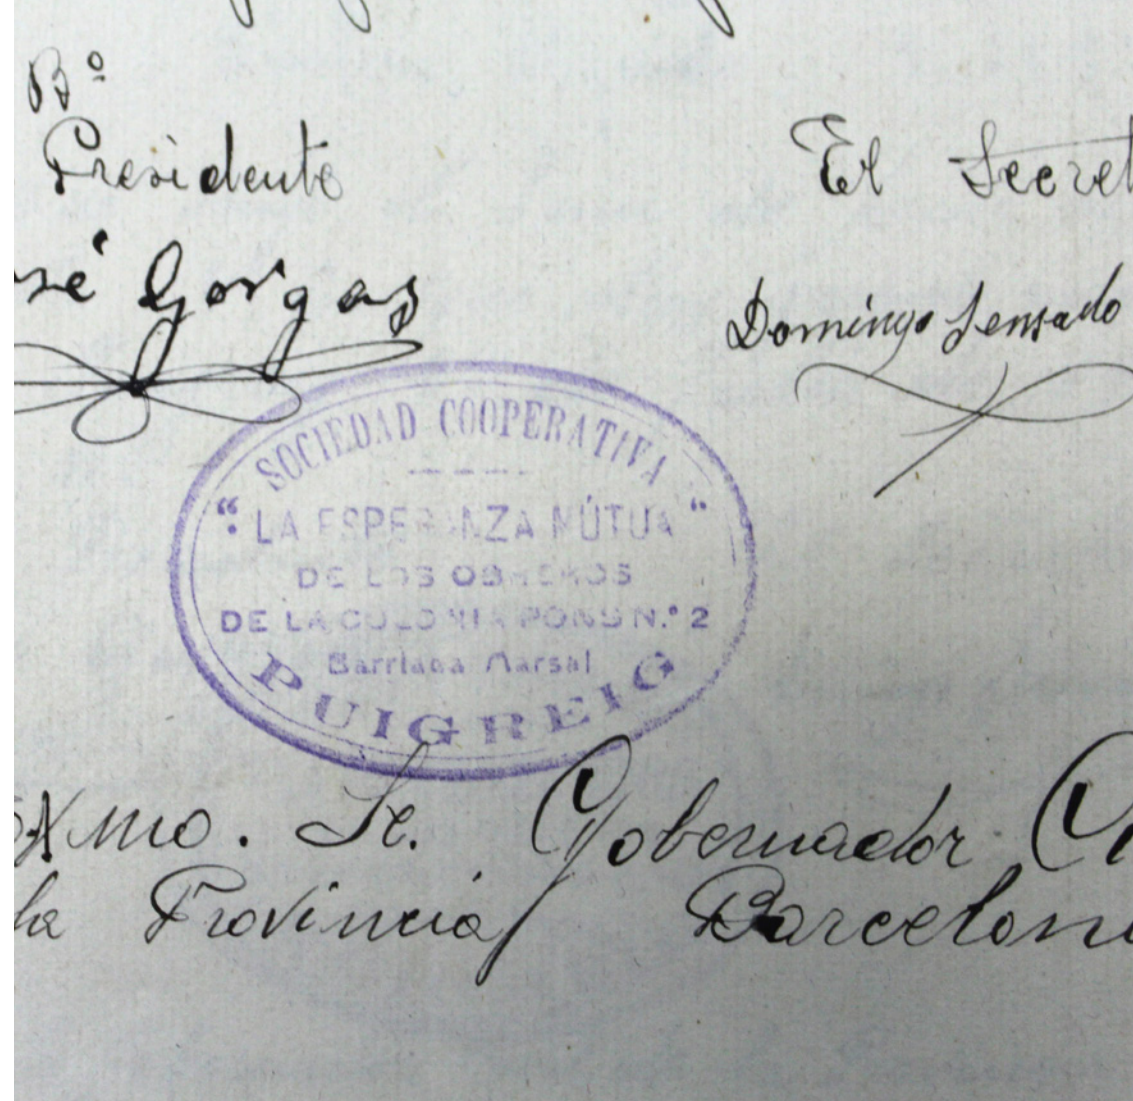 Bº
Presidente
El Secret
sé Gorgas
Domingo Sensado
SOCIEDAD COOPERATIVA
“ LA ESPERANZA MÚTUA “
DE LOS OBREROS
DE LA COLONIA PONS N.º 2
Barriada Marsal
PUIGREIG
Exmo. Sr. Gobernador C
la Provincia Barcelon